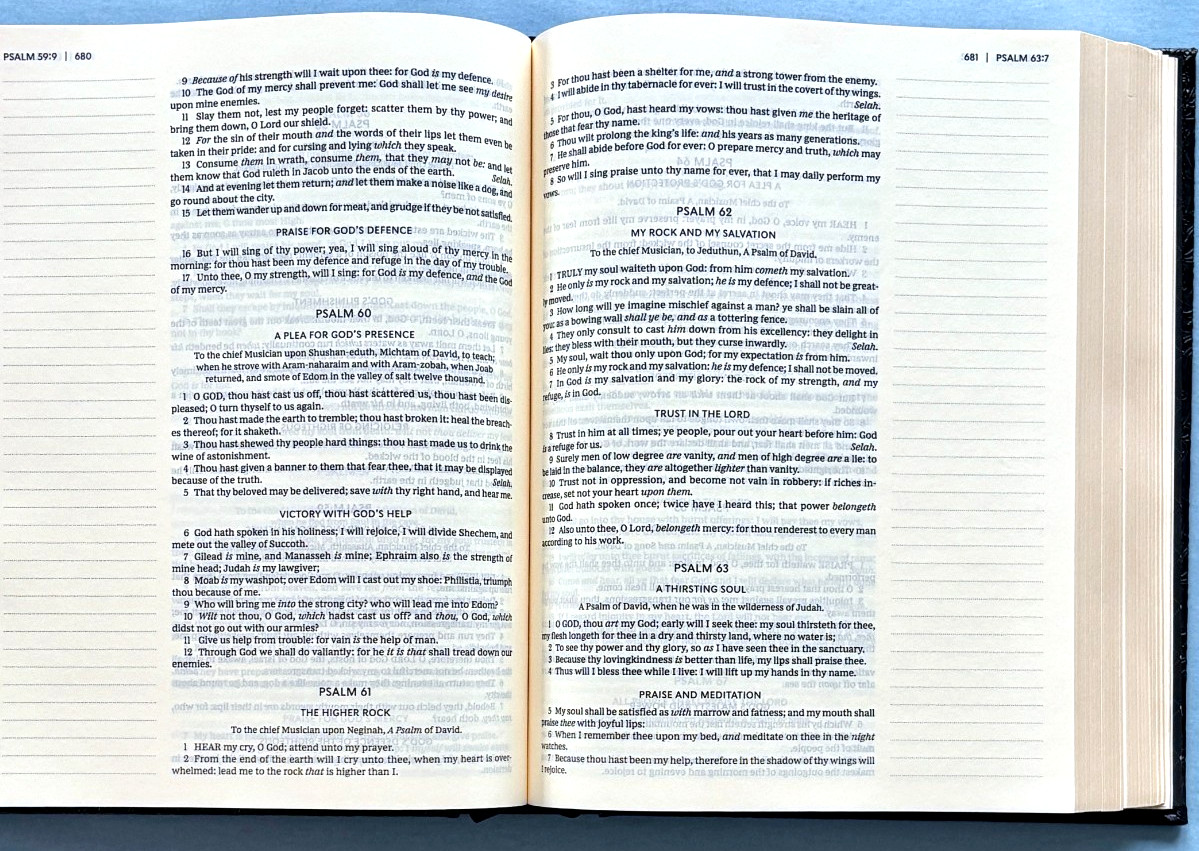 PSALM 59:9 | 680
9 Because of his strength will I wait upon thee: for God is my defence.
10 The God of my mercy shall prevent me: God shall let me see my desire
upon mine enemies.
11 Slay them not, lest my people forget: scatter them by thy power; and
bring them down, O Lord our shield.
12 For the sin of their mouth and the words of their lips let them even be
taken in their pride: and for cursing and lying which they speak.
13 Consume them in wrath, consume them, that they may not be: and let
them know that God ruleth in Jacob unto the ends of the earth. Selah.
14 And at evening let them return; and let them make a noise like a dog, and
go round about the city.
15 Let them wander up and down for meat, and grudge if they be not satisfied.
PRAISE FOR GOD'S DEFENCE
16 But I will sing of thy power; yea, I will sing aloud of thy mercy in the
morning: for thou hast been my defence and refuge in the day of my trouble.
17 Unto thee, O my strength, will I sing: for God is my defence, and the God
of my mercy.
PSALM 60
A PLEA FOR GOD'S PRESENCE
To the chief Musician upon Shushan-eduth, Michtam of David, to teach;
when he strove with Aram-naharaim and with Aram-zobah, when Joab
returned, and smote of Edom in the valley of salt twelve thousand.
1 O GOD, thou hast cast us off, thou hast scattered us, thou hast been dis-
pleased; O turn thyself to us again.
2 Thou hast made the earth to tremble; thou hast broken it: heal the breach-
es thereof; for it shaketh.
3 Thou hast shewed thy people hard things: thou hast made us to drink the
wine of astonishment.
4 Thou hast given a banner to them that fear thee, that it may be displayed
because of the truth. Selah.
5 That thy beloved may be delivered; save with thy right hand, and hear me.
VICTORY WITH GOD'S HELP
6 God hath spoken in his holiness; I will rejoice, I will divide Shechem, and
mete out the valley of Succoth.
7 Gilead is mine, and Manasseh is mine; Ephraim also is the strength of
mine head; Judah is my lawgiver;
8 Moab is my washpot; over Edom will I cast out my shoe: Philistia, triumph
thou because of me.
9 Who will bring me into the strong city? who will lead me into Edom?
10 Wilt not thou, O God, which hadst cast us off? and thou, O God, which
didst not go out with our armies?
11 Give us help from trouble: for vain is the help of man.
12 Through God we shall do valiantly: for he it is that shall tread down our
enemies.
PSALM 61
THE HIGHER ROCK
To the chief Musician upon Neginah, A Psalm of David.
1 HEAR my cry, O God; attend unto my prayer.
2 From the end of the earth will I cry unto thee, when my heart is over-
whelmed: lead me to the rock that is higher than I.
681 | PSALM 63:7
3 For thou hast been a shelter for me, and a strong tower from the enemy.
4 I will abide in thy tabernacle for ever: I will trust in the covert of thy wings.
Selah.
5 For thou, O God, hast heard my vows: thou hast given me the heritage of
those that fear thy name.
6 Thou wilt prolong the king's life: and his years as many generations.
7 He shall abide before God for ever: O prepare mercy and truth, which may
preserve him.
8 So will I sing praise unto thy name for ever, that I may daily perform my
vows.
PSALM 62
MY ROCK AND MY SALVATION
To the chief Musician, to Jeduthun, A Psalm of David.
1 TRULY my soul waiteth upon God: from him cometh my salvation.
2 He only is my rock and my salvation; he is my defence; I shall not be great-
ly moved.
3 How long will ye imagine mischief against a man? ye shall be slain all of
you: as a bowing wall shall ye be, and as a tottering fence.
4 They only consult to cast him down from his excellency: they delight in
lies: they bless with their mouth, but they curse inwardly. Selah.
5 My soul, wait thou only upon God; for my expectation is from him.
6 He only is my rock and my salvation: he is my defence; I shall not be moved.
7 In God is my salvation and my glory: the rock of my strength, and my
refuge, is in God.
TRUST IN THE LORD
8 Trust in him at all times; ye people, pour out your heart before him: God
is a refuge for us. Selah.
9 Surely men of low degree are vanity, and men of high degree are a lie: to
be laid in the balance, they are altogether lighter than vanity.
10 Trust not in oppression, and become not vain in robbery: if riches in-
crease, set not your heart upon them.
11 God hath spoken once; twice have I heard this; that power belongeth
unto God.
12 Also unto thee, O Lord, belongeth mercy: for thou renderest to every man
according to his work.
PSALM 63
A THIRSTING SOUL
A Psalm of David, when he was in the wilderness of Judah.
1 O GOD, thou art my God; early will I seek thee: my soul thirsteth for thee,
my flesh longeth for thee in a dry and thirsty land, where no water is;
2 To see thy power and thy glory, so as I have seen thee in the sanctuary.
3 Because thy lovingkindness is better than life, my lips shall praise thee.
4 Thus will I bless thee while I live: I will lift up my hands in thy name.
PRAISE AND MEDITATION
5 My soul shall be satisfied as with marrow and fatness; and my mouth shall
praise thee with joyful lips:
6 When I remember thee upon my bed, and meditate on thee in the night
watches.
7 Because thou hast been my help, therefore in the shadow of thy wings will
I rejoice.